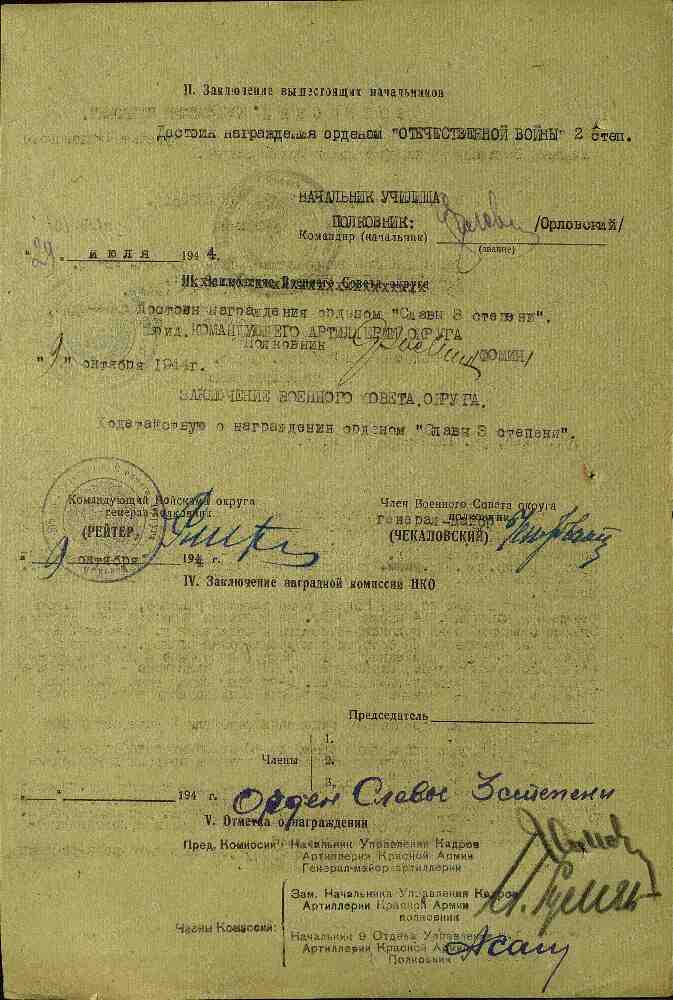 II. Заключение вышестоящих начальников
Достоин награждения орденом "ОТЕЧЕСТВЕННОЙ ВОЙНЫ" 2 степ.
НАЧАЛЬНИК УЧИЛИЩА
ПОЛКОВНИК: /Орловский/
Командир (начальник)
(звание)
"29." июля 1944.
III. Заключение Военного Совета округа
Достоин награждения орденом "Славы 3 степени".
КОМАНДУЮЩЕГО АРТИЛЛЕРИИ ОКРУГА
Полковник /ФОМИН/
"9" октября 1944г.
ЗАКЛЮЧЕНИЕ ВОЕННОГО СОВЕТА ОКРУГА.
Ходатайствую о награждении орденом "Славы 3 степени".
Командующий Войсками округа
генерал-полковник
(РЕЙТЕР)
Член Военного Совета округа
генерал-майор
(ЧЕКАЛОВСКИЙ)
"9" октября 1944 г.
IV. Заключение наградной комиссии НКО
Председатель
Члены
1.
2.
3.
" " 194 г.
Орден Славы 3 степени
V. Отметка о награждении
Пред. Комиссии Начальник Управления Кадров
Артиллерии Красной Армии
Генерал-майор артиллерии
Члены Комиссии:
Зам. Начальника Управления Кадров
Артиллерии Красной Армии
полковник
Начальник 9 Отдела Управления
Артиллерии Красной Армии
Полковник